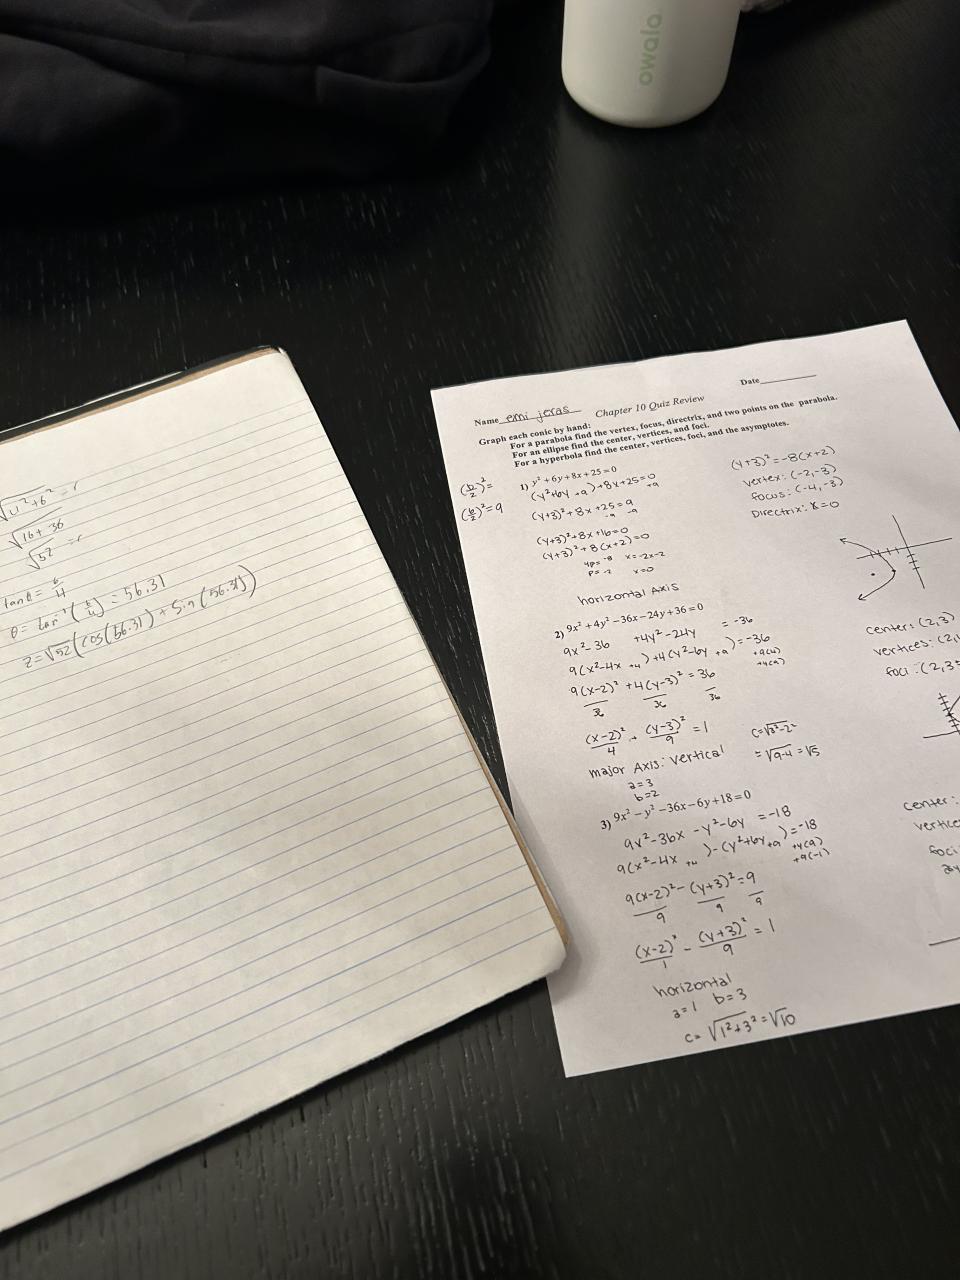 owala
√4²+6² = r
√16+36
√52 = r
tanθ = 6/4
θ = tan⁻¹(6/4) = 56.31
z=√52(cos(56.31) + sin(56.31))
Date
Name emi jeras Chapter 10 Quiz Review
Graph each conic by hand:
For a parabola find the vertex, focus, directrix, and two points on the parabola.
For an ellipse find the center, vertices, and foci.
For a hyperbola find the center, vertices, foci, and the asymptotes.
(b/2)²=
(6/2)²=9
1) y² + 6y + 8x + 25 = 0
(y²+6y +9)+8x+25=0
+9
(y+3)²+8x+25=9
-9 -9
(y+3)²+8x+16=0
(y+3)²+8(x+2)=0
4p=-8 x=-2+2
p=-2 x=0
horizontal Axis
(y+3)²=-8(x+2)
vertex: (-2,-3)
focus: (-4,-3)
Directrix: x=0
2) 9x² + 4y² - 36x - 24y + 36 = 0
9x²-36 +4y²-24y = -36
9(x²-4x +4)+4(y²-6y +9)=-36
+9(4)
+4(9)
9(x-2)² + 4(y-3)² = 36
36 36 36
(x-2)²/4 + (y-3)²/9 = 1
c=√3²-2²
=√9-4 =√5
major Axis: vertical
a=3
b=2
center: (2,3)
vertices: (2,
foci: (2,3
3) 9x² - y² - 36x - 6y + 18 = 0
9x²-36x -y²-6y =-18
9(x²-4x +4)-(y²+6y+9)=-18
+4(9)
+9(-1)
9(x-2)² - (y+3)² = 9
9 9 9
(x-2)²/1 - (y+3)²/9 = 1
horizontal
a=1 b=3
c= √1²+3² = √10
center:
vertice
foci